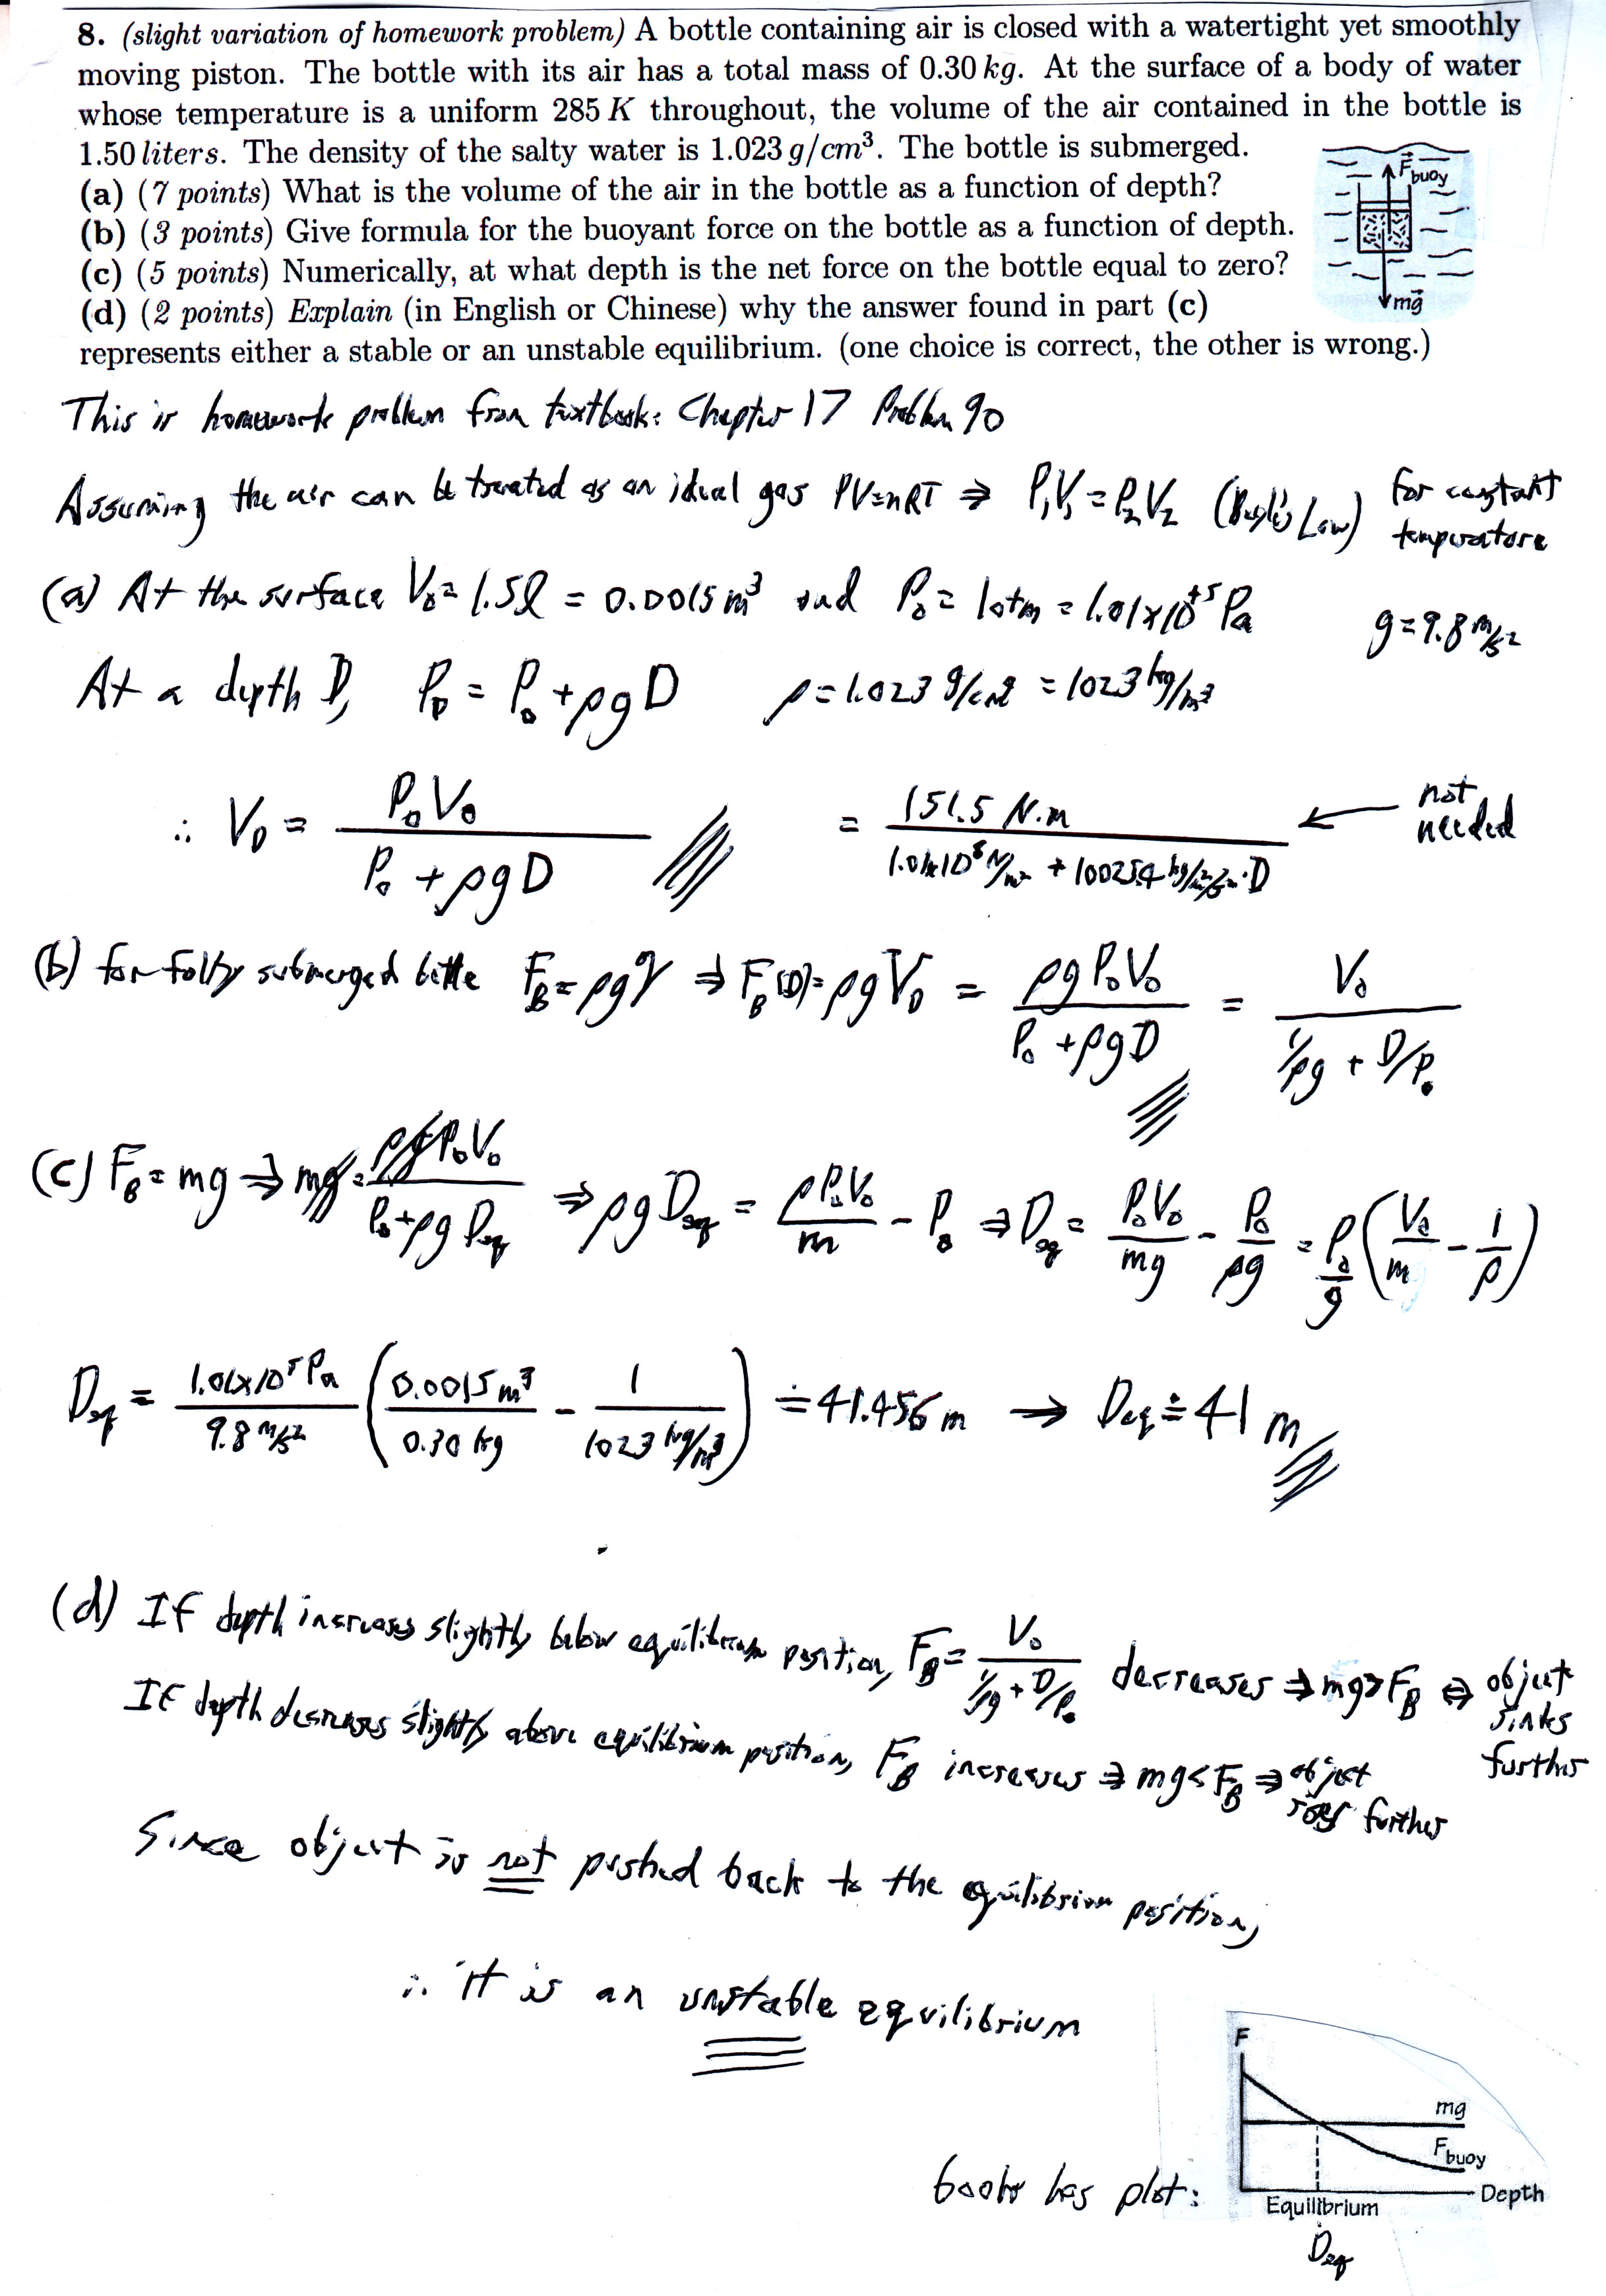 8. (slight variation of homework problem) A bottle containing air is closed with a watertight yet smoothly
moving piston. The bottle with its air has a total mass of 0.30 kg. At the surface of a body of water
whose temperature is a uniform 285 K throughout, the volume of the air contained in the bottle is
1.50 liters. The density of the salty water is 1.023 g/cm³. The bottle is submerged.
(a) (7 points) What is the volume of the air in the bottle as a function of depth?
(b) (3 points) Give formula for the buoyant force on the bottle as a function of depth.
(c) (5 points) Numerically, at what depth is the net force on the bottle equal to zero?
(d) (2 points) Explain (in English or Chinese) why the answer found in part (c)
represents either a stable or an unstable equilibrium. (one choice is correct, the other is wrong.)
F buoy
mg
This is homework problem from textbook: Chapter 17 Problem 90
Assuming the air can be treated as an ideal gas PV=nRT ⇒ P₁V₁ = P₂V₂ (Boyle's Law) for constant temperature
(a) At the surface V₀ = 1.5ℓ = 0.0015 m³ and P₀ = 1 atm = 1.01×10⁺⁵ Pa g = 9.8 m/s²
At a depth D, P_D = P₀ + ρgD ρ = 1.023 g/cm³ = 1023 kg/m³
∴ V_D = P₀V₀ / (P₀ + ρgD) = 151.5 N·m / (1.01×10⁵ N/m² + 10025.4 kg/m²/s² · D) ← not needed
(b) for fully submerged bottle F_B = ρgV ⇒ F_B(D) = ρgV_D = ρgP₀V₀ / (P₀ + ρgD) = V₀ / (1/ρg + D/P₀)
(c) F_B = mg ⇒ mg = ρgP₀V₀ / (P₀ + ρgD_eq) ⇒ ρgD_eq = ρP₀V₀/m - P₀ ⇒ D_eq = P₀V₀/mg - P₀/ρg = P₀/g (V₀/m - 1/ρ)
D_eq = 1.01×10⁵ Pa / 9.8 m/s² (0.0015 m³ / 0.30 kg - 1 / 1023 kg/m³) ≐ 41.456 m → D_eq ≐ 41 m
(d) If depth increases slightly below equilibrium position, F_B = V₀ / (1/ρg + D/P₀) decreases ⇒ mg > F_B ⇔ object sinks further
If depth decreases slightly above equilibrium position, F_B increases ⇒ mg < F_B ⇒ object rises further
Since object is not pushed back to the equilibrium position,
∴ it is an unstable equilibrium
book has plot:
F
mg
F buoy
Depth
Equilibrium
D_eq